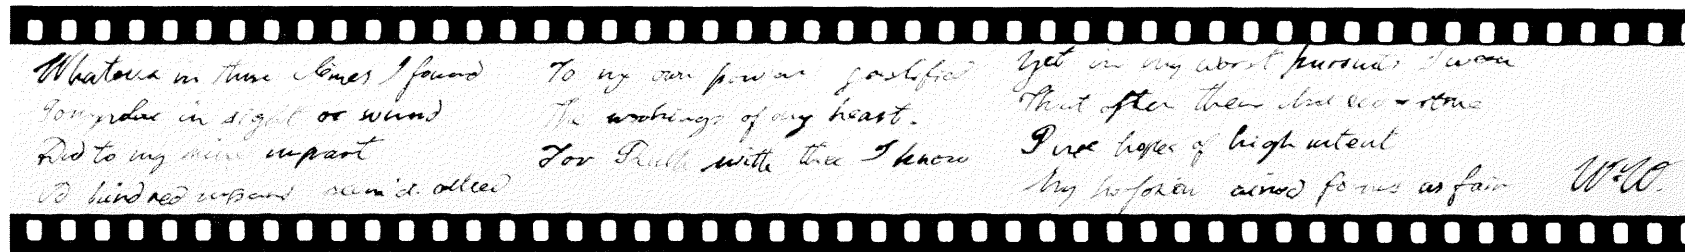 Whatever in those climes I found
in sight or sound
Did to my impart
kindred seem'd allied
To my own power justified
The workings of my heart.
For Truth with thee I know
Yet in my worst pursuits I ween
That often there
Pure hopes of high intent
My forms as fair W.W.